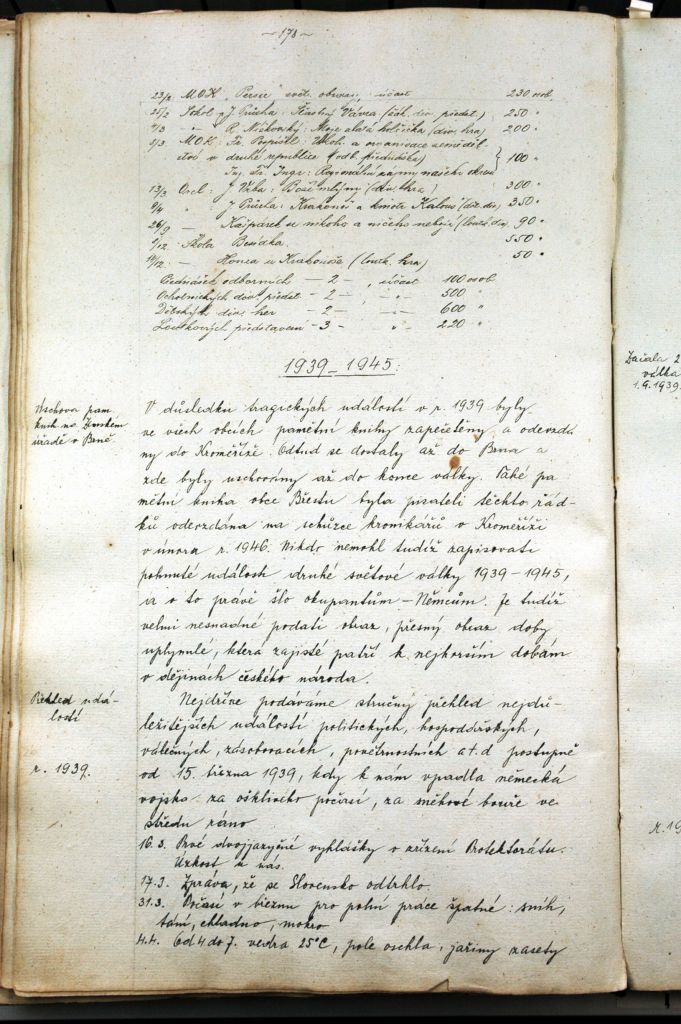 ~ 178 ~
23/2 M.O.K. "Persie" svět. obrazy, účast 230 osob.
25/2 Sokol J. Průcha: Šťastný Vávra (čák. div. předst.) 250 "
4/3 — " — R. Nískovský: Moje zlatá holčička (div. hra) 200 "
9/3 M.O.K. Fr. Pospíšil: Úkol. a organisace zeměděl-
ství v druhé republice (odb. přednáška) 100 "
Ing. Fr. Ingr: Regionální zájmy našeho okresu
13/3 Orel: J. Vrba: Boží mlýny (div. hra) 300 "
9/4 " J. Průcha: Krakonoš a kmotr Kalous (dět. div.) 350 "
26/9 — Kašpárek se nikoho a ničeho nebojí (loutk. div.) 90 "
9/12 Škola Besídka. 550 "
14/12. — Honza u Krakonoše (loutk. hra) 50 "
Přednášek odborných — 2 — , účast 100 osob
Ochotnických div. předst — 2 — , — " — 500 "
Dětských div. her — 2 — — " — 600 "
Loutkových představení — 3 — " — 220 "
1939 – 1945:
Úschova pam.
knih na Zemském
úřadě v Brně.
V důsledku tragických událostí v r. 1939 byly
ve všech obcích pamětní knihy zapečetěny a odevzdá-
ny do Kroměříže. Odtud se dostaly až do Brna a
zde byly uschovány až do konce války. Také pa-
mětní kniha obce Břestu byla pisateli těchto řád-
ků odevzdána na schůzce kronikářů v Kroměříži
v únoru r. 1946. Nikdo nemohl tudíž zapisovati
pohnuté události druhé světové války 1939 – 1945,
a o to právě šlo okupantům – Němcům. Je tudíž
velmi nesnadné podati obraz, přesný obraz doby
uplynulé, která zajisté patří k nejhorším dobám
v dějinách českého národa.
Přehled udá-
lostí
r. 1939.
Nejdříve podáváme stručný přehled nejdů-
ležitějších událostí politických, hospodářských,
válečných, zásobovacích, povětrnostních a t. d postupně
od 15. března 1939, kdy k nám vpadla německá
vojska za ošklivého počasí, za sněhové bouře ve
středu ráno
16.3. Prvé dvojjazyčné vyhlášky o zřízení Protektorátu.
Úzkost u nás.
17.3. Zpráva, že se Slovensko odtrhlo.
31.3. Počasí v březnu pro polní práce špatné: sníh,
tání, chladno, mokro
4.4. Od 4 do 7. vedra 25°C, pole oschla, jařiny zasety
Začala 2
válka
1.9.1939.
r. 19